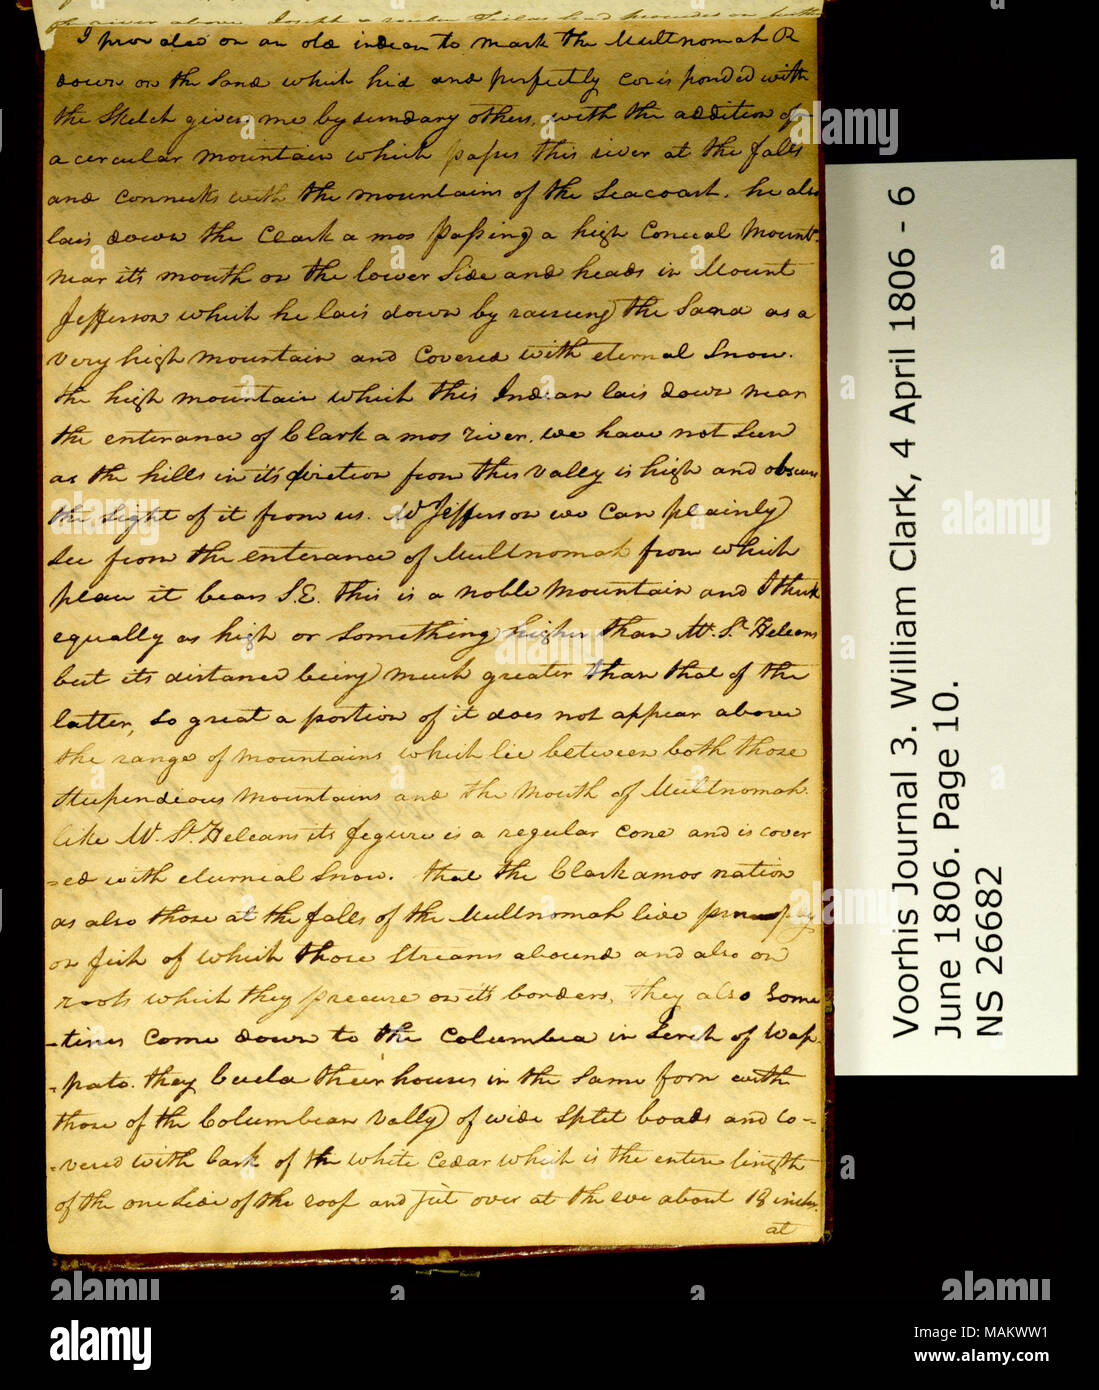 of the river above. Joseph
I provaled on an old indian to mark the Multnomah R
down on the Sand which hid and perfectly Corisponded with
the Sketch given me by sundary others, with the addition of
a circular mountain which passes this river at the falls
and connects with the mountains of the Seacoast. he also
lais down the Clark a mos passing a high Conical Mountn.
near it's mouth on the lower Side and heads in Mount
Jefferson which he lais down by raiseing the Sand as a
very high mountain and Covered with eternal Snow.
the high mountain which this Indian lais down near
the enterance of Clark a mos river, we have not Seen
as the hills in it's diretion from this vally is high and obscures
the Sight of it from us. Mt Jefferson we can plainly
See from the enterance of Multnomah from which
place it bears S.E. this is a noble Mountain and I think
equally as high or something higher than Mt. St. Heleans
but its distance being much greater than that of the
latter, So great a portion of it does not appear above
the range of mountains which lie between both those
Stupendious Mountains and the Mouth of Multnomah.
like Mt. St. Heleans its figure is a regular Cone and is cover
=ed with eturnial Snow. that the Clarkamos nation
as also those at the falls of the Multnomah live
on fish of which those Streams abound and also on
roots which they precure on it's borders, they also Some
=times Come down to the Columbia in Serch of Wap
=pato. they build their houses in the Same form with
those of the Columbian vally of wide Split boads and Co=
=vered with bark of the white Cedar which is the entire length
of the one Side of the roof and jut over at the eve about 18 inches.
at
Voorhis Journal 3. William Clark, 4 April 1806 - 6
June 1806. Page 10.
NS 26682
alamy
a
alamy
Image ID: MAKWW1
www.alamy.com